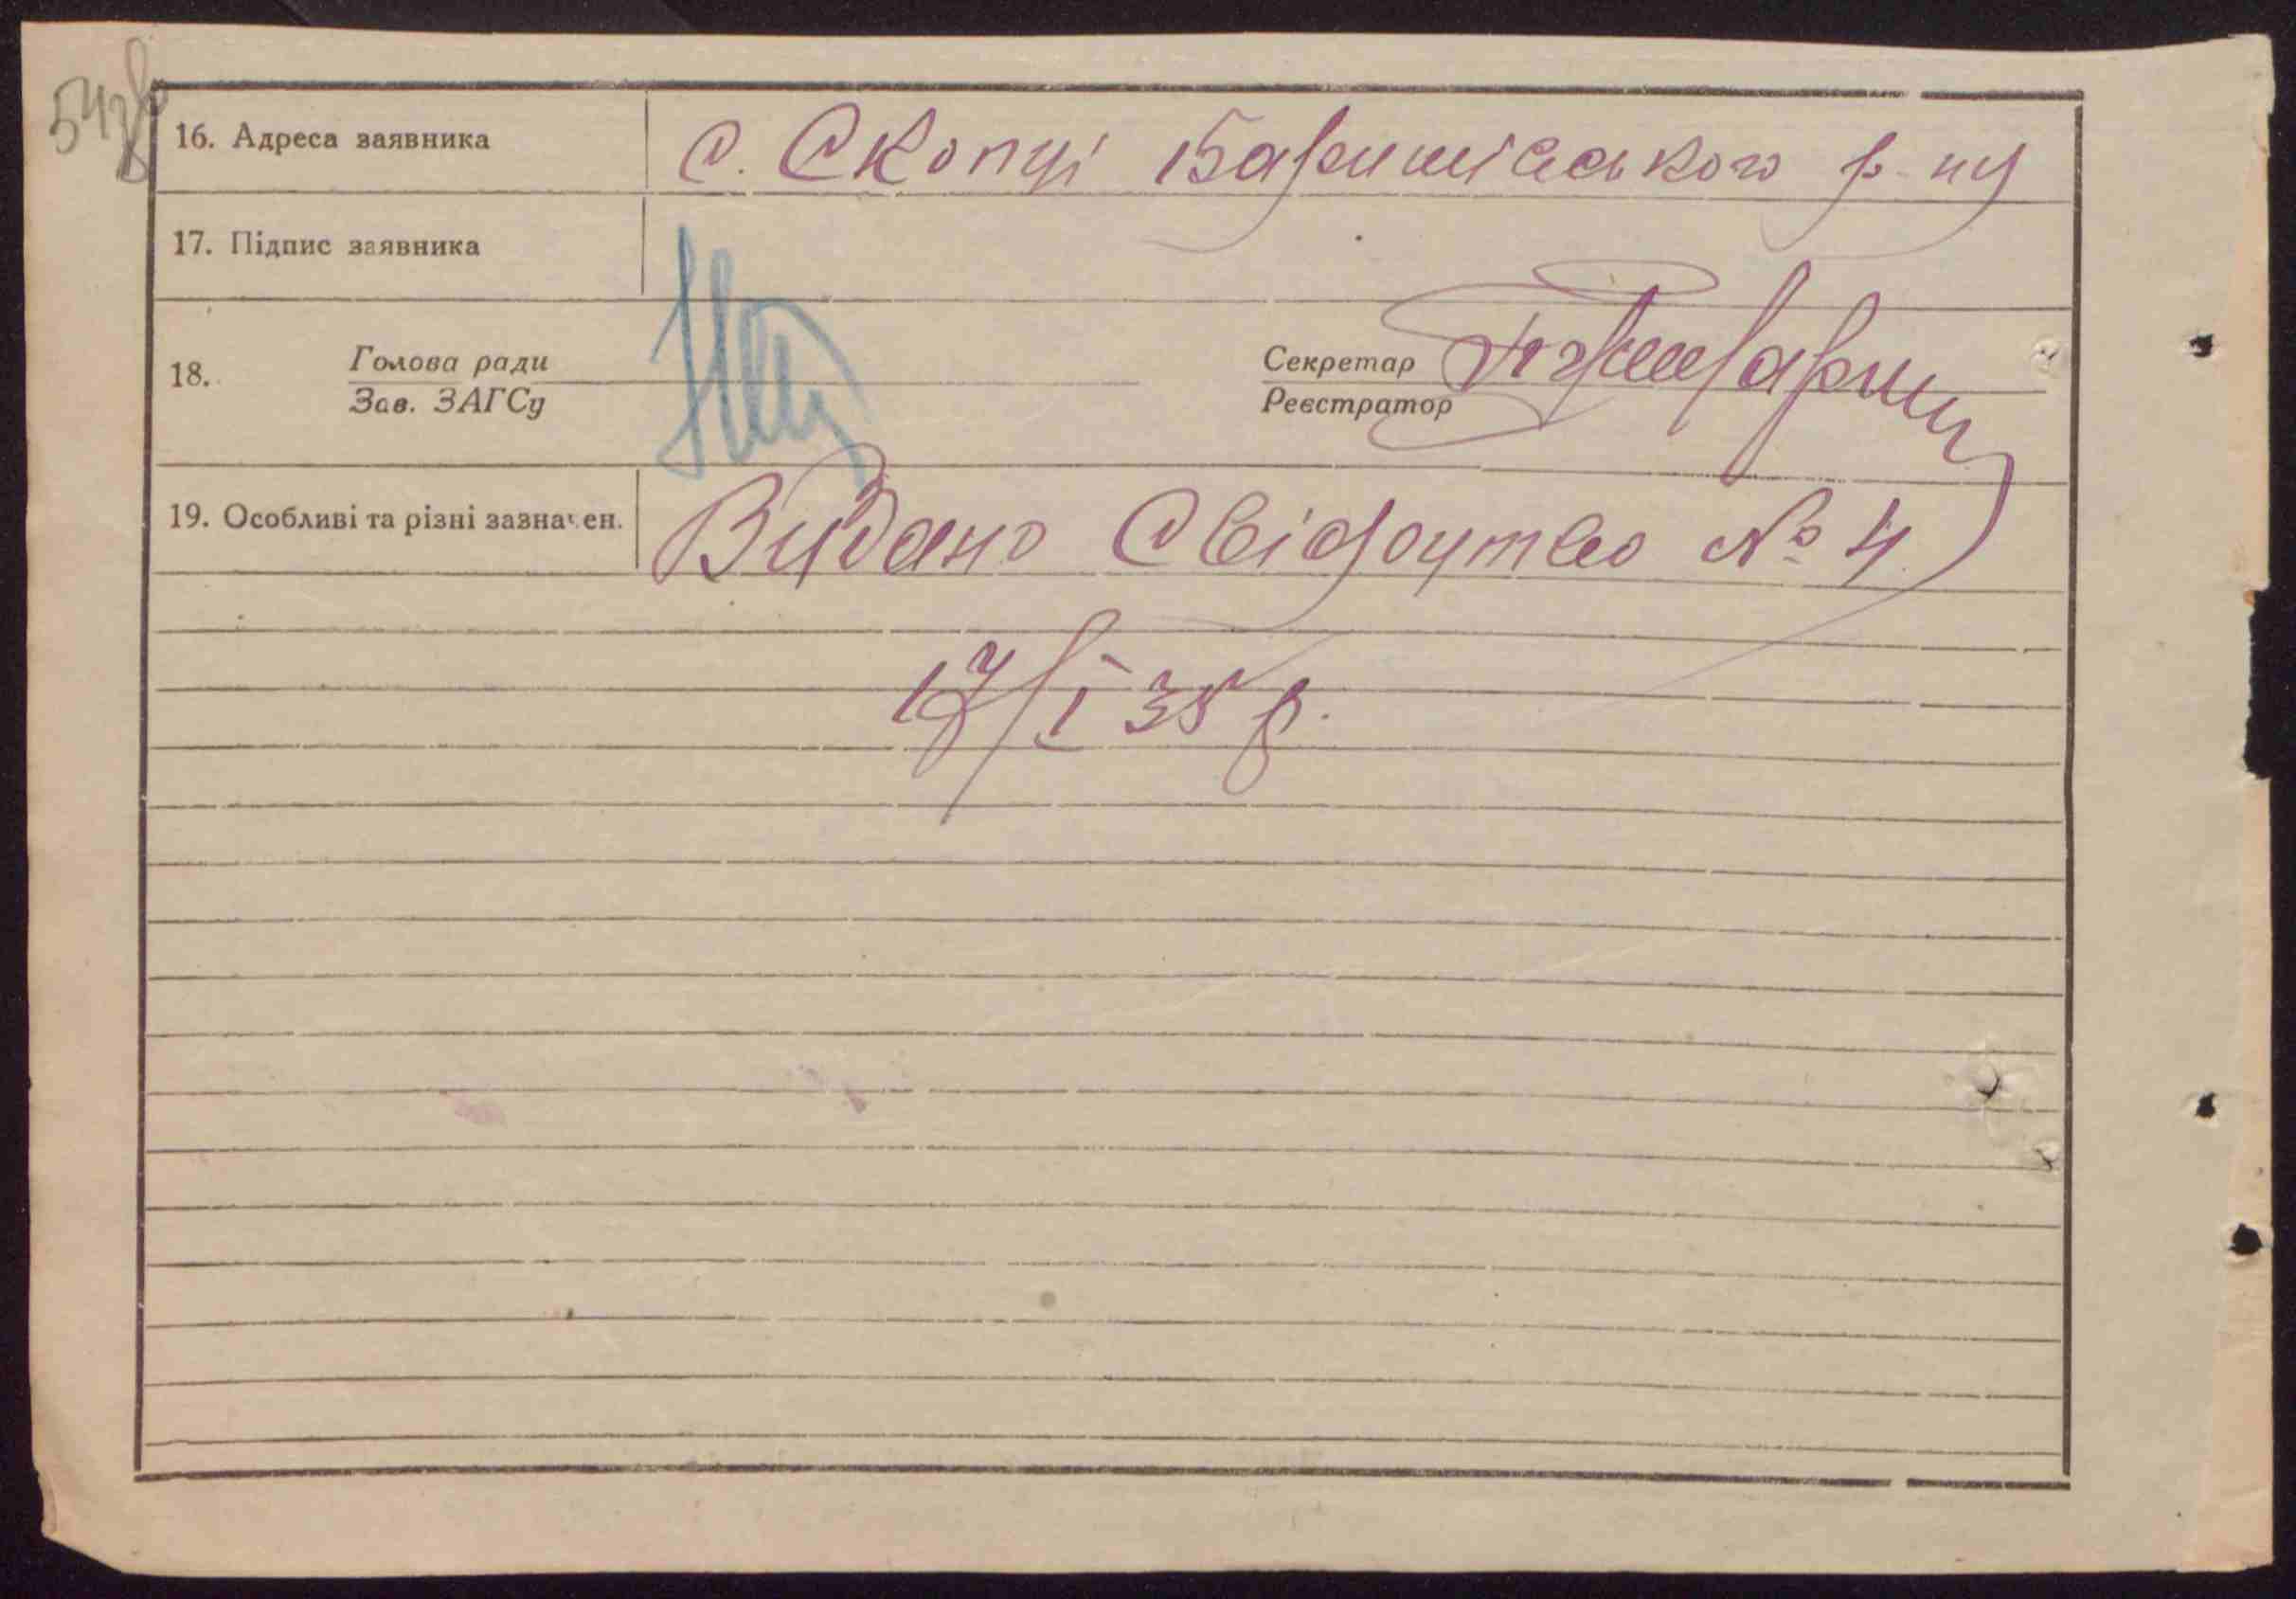 16. Адреса заявника с. Скопці Баришівського р-ну
17. Підпис заявника
18. Голова ради Секретар
Зав. ЗАГСу Реєстратор
19. Особливі та різні зазначен. Видано Свідоцтво № 4
17/I 35 р.